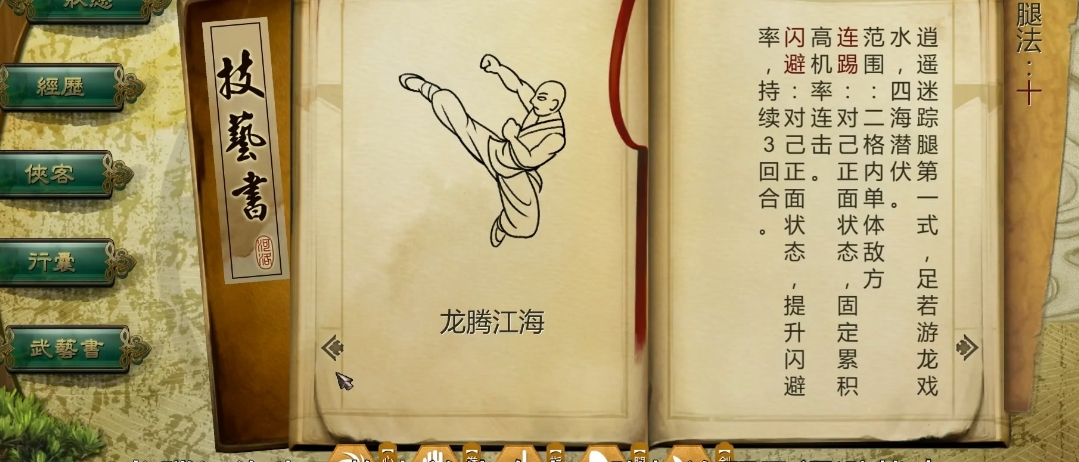 狀態
經歷
俠客
行囊
武藝書
技藝書
河洛
龙腾江海
腿法：十
逍遥迷踪腿第一式，足若游龙戏
水，四海潜伏。
范围：二格内单体敌方
连踢：对己正面状态，固定累积
高机率连击。
闪避：对己正面状态，提升闪避
率，持续3回合。